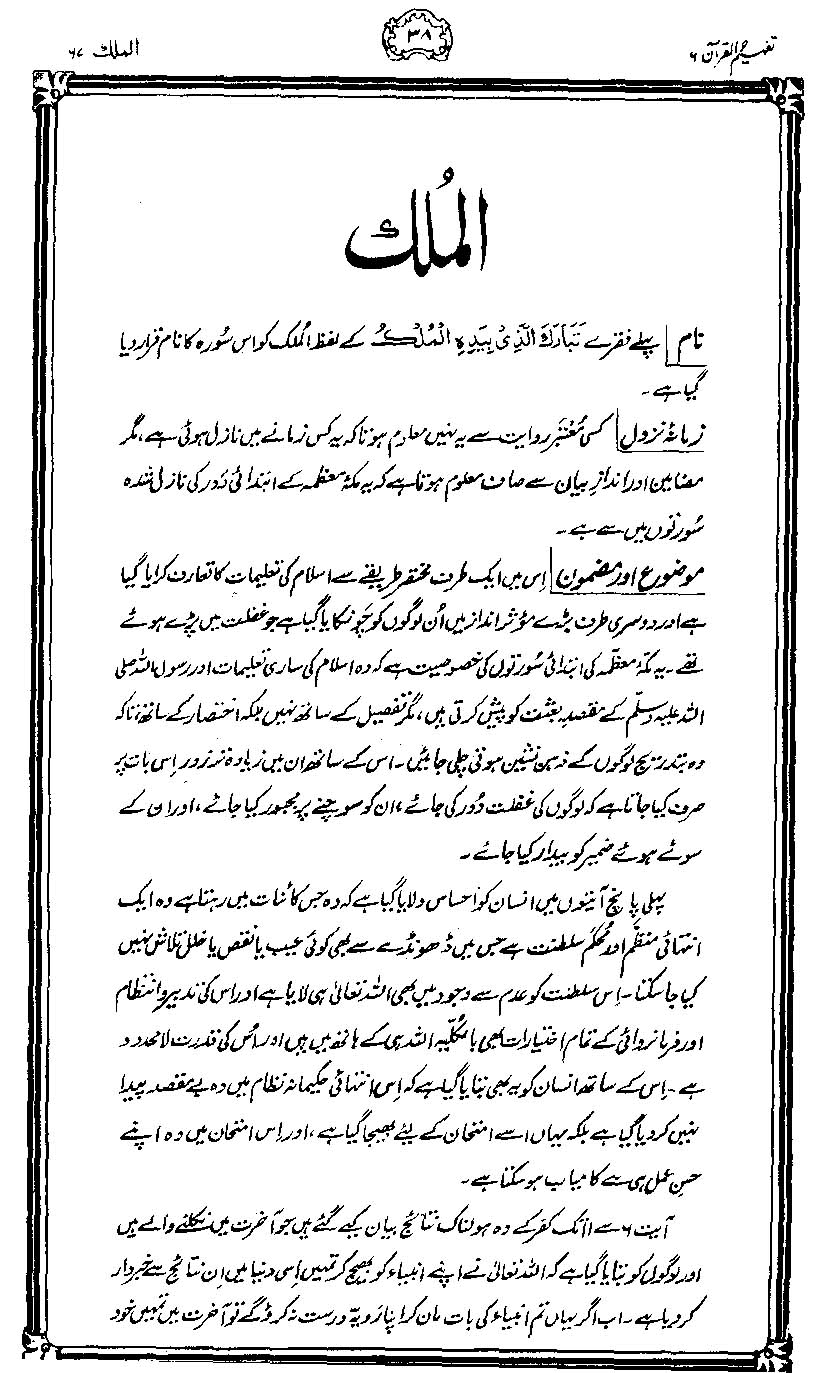 تفہیم القرآن ۶
۳۸
الملک ۶۷
المُلک
نام | پہلے فقرے تَبَارَكَ الَّذِیْ بِیَدِہِ الْمُلْكُ کے لفظ المُلک کو اس سُورہ کا نام قرار دیا
گیا ہے۔
زمانۂ نزول | کسی مُعتبَر روایت سے یہ نہیں معلوم ہوتا کہ یہ کس زمانے میں نازل ہوئی ہے، مگر
مضامین اور اندازِ بیان سے صاف معلوم ہوتا ہے کہ یہ مکۂ معظمہ کے ابتدائی دَور کی نازل شدہ
سُورتوں میں سے ہے۔
موضوع اور مضمون | اِس میں ایک طرف مختصر طریقے سے اسلام کی تعلیمات کا تعارف کرایا گیا
ہے اور دوسری طرف بڑے مؤثر انداز میں اُن لوگوں کو چَونکایا گیا ہے جو غفلت میں پڑے ہوئے
تھے۔ یہ مکۂ معظّمہ کی ابتدائی سُورتوں کی خصوصیت ہے کہ وہ اسلام کی ساری تعلیمات اور رسول اللہ صلی
اللہ علیہ وسلّم کے مقصدِ بعثت کو پیش کرتی ہیں، مگر تفصیل کے ساتھ نہیں بلکہ اختصار کے ساتھ، تاکہ
وہ بتدریج لوگوں کے ذہن نشین ہوتی چلی جائیں۔ اس کے ساتھ ان میں زیادہ تر زور اِس بات پر
صرف کیا جاتا ہے کہ لوگوں کی غفلت دُور کی جائے، ان کو سوچنے پر مجبور کیا جائے، اور ان کے
سوئے ہوئے ضمیر کو بیدار کیا جائے۔
پہلی پانچ آیتوں میں انسان کو احساس دلایا گیا ہے کہ وہ جس کائنات میں رہتا ہے وہ ایک
انتہائی منظّم اور مُحکَم سلطنت ہے جس میں ڈھونڈے سے بھی کوئی عیب یا نقص یا خلل تلاش نہیں
کیا جا سکتا۔ اِس سلطنت کو عدم سے وجود میں بھی اللہ تعالیٰ ہی لایا ہے اور اس کی تدبیر و انتظام
اور فرمانروائی کے تمام اختیارات بھی بالکُلّیہ اللہ ہی کے ہاتھ میں ہیں اور اُس کی قدرت لامحدود
ہے۔ اِس کے ساتھ انسان کو یہ بھی بتایا گیا ہے کہ اِس انتہائی حکیمانہ نظام میں وہ بے مقصد پیدا
نہیں کر دیا گیا ہے بلکہ یہاں اسے امتحان کے لیے بھیجا گیا ہے، اور اِس امتحان میں وہ اپنے
حسنِ عمل ہی سے کامیاب ہو سکتا ہے۔
آیت ۶ سے ۱۱ تک کفر کے وہ ہولناک نتائج بیان کیے گئے ہیں جو آخرت میں نکلنے والے ہیں
اور لوگوں کو بتایا گیا ہے کہ اللہ تعالیٰ نے اپنے انبیاء کو بھیج کر تمہیں اِسی دنیا میں اِن نتائج سے خبردار
کر دیا ہے۔ اب اگر یہاں تم انبیاء کی بات مان کر اپنا رویہ درست نہ کرو گے تو آخرت میں تمہیں خود